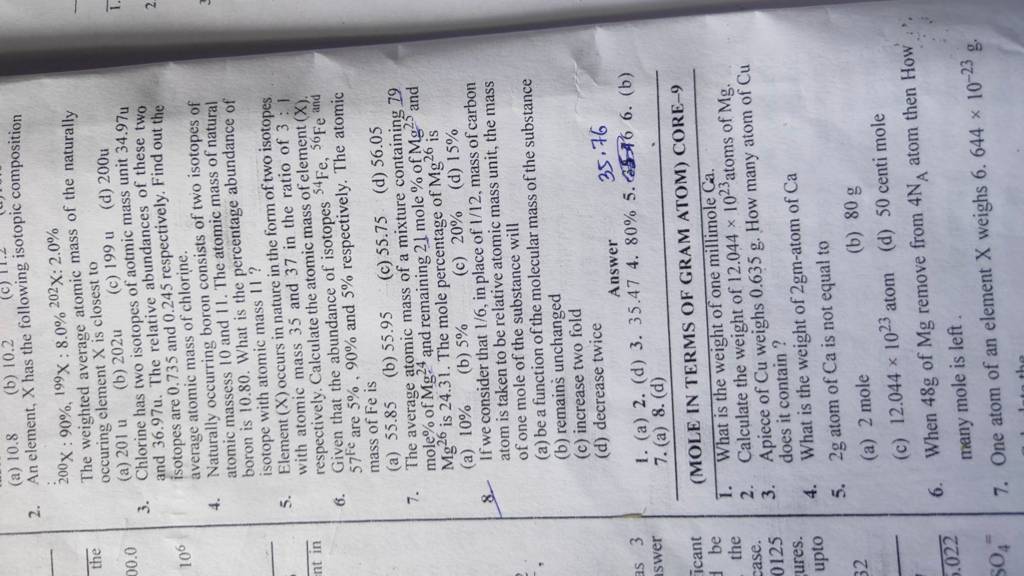 (a) 10.8 (b) 10.2 (c) 11.2
2. An element, X has the following isotopic composition
²⁰⁰X : 90%, ¹⁹⁹X : 8.0% ²⁰²X: 2.0%
The weighted average atomic mass of the naturally
occuring element X is closest to
(a) 201 u (b) 202u (c) 199 u (d) 200u
3. Chlorine has two isotopes of aotmic mass unit 34.97u
and 36.97u. The relative abundances of these two
isotopes are 0.735 and 0.245 respectively. Find out the
average atomic mass of chlorine.
4. Naturally occurring boron consists of two isotopes of
atomic massess 10 and 11. The atomic mass of natural
boron is 10.80. What is the percentage abundance of
isotope with atomic mass 11 ?
5. Element (X) occurs in nature in the form of two isotopes
with atomic mass 35 and 37 in the ratio of 3 : 1
respectively. Calculate the atomic mass of element (X).
6. Given that the abundance of isotopes ⁵⁴Fe, ⁵⁶Fe and
⁵⁷Fe are 5%, 90% and 5% respectively. The atomic
mass of Fe is
(a) 55.85 (b) 55.95 (c) 55.75 (d) 56.05
7. The average atomic mass of a mixture containing 79
mole% of Mg²⁴ and remaining 21 mole % of Mg²⁵ and
Mg²⁶ is 24.31. The mole percentage of Mg²⁶ is
(a) 10% (b) 5% (c) 20% (d) 15%
8. If we consider that 1/6, in place of 1/12, mass of carbon
atom is taken to be relative atomic mass unit, the mass
of one mole of the substance will
(a) be a function of the molecular mass of the substance
(b) remains unchanged
(c) increase two fold
(d) decrease twice
Answer
35.76
1. (a) 2. (d) 3. 35.47 4. 80% 5. 6. (b)
7. (a) 8. (d)
(MOLE IN TERMS OF GRAM ATOM) CORE-9
1. What is the weight of one millimole Ca.
2. Calculate the weight of 12.044 × 10²³ atoms of Mg.
3. Apiece of Cu weighs 0.635 g. How many atom of Cu
does it contain ?
4. What is the weight of 2gm-atom of Ca
5. 2g atom of Ca is not equal to
(a) 2 mole (b) 80 g
(c) 12.044 × 10²³ atom (d) 50 centi mole
6. When 48g of Mg remove from 4N_A atom then How
many mole is left .
7. One atom of an element X weighs 6. 644 × 10⁻²³ g.
the
00.0
10⁶
nt in
as 3
swer
ficant
d be
the
case.
0125
ures.
upto
32
.022
SO₄ =
1.
2.